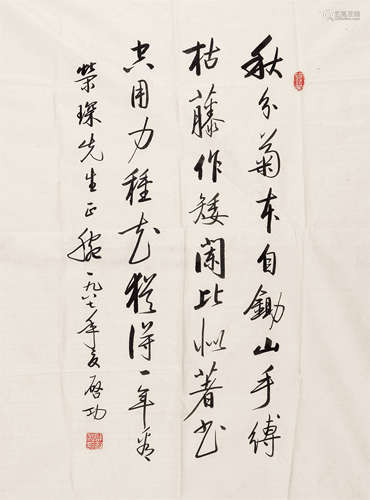 秋分菊本自鋤山手縛
枯藤作矮闌比似著書
空用力種花猶得一年看
榮琛先生正腕一九八七年夏啓功